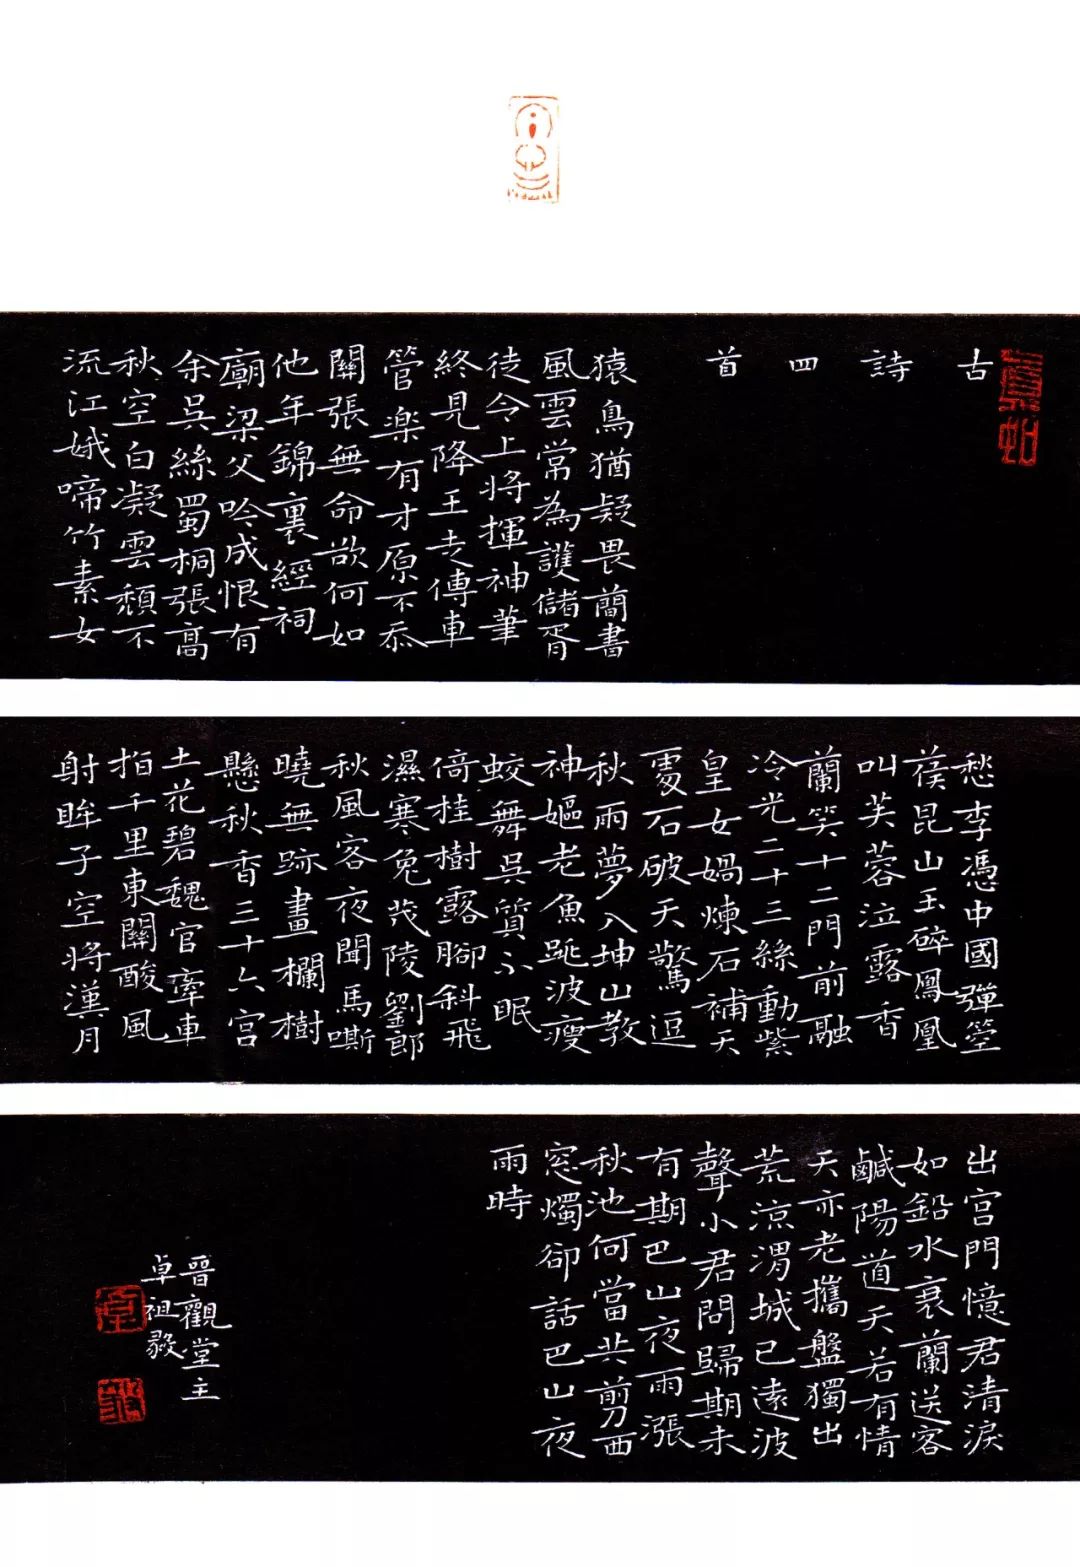 古詩四首
猿鳥猶疑畏簡書
風雲常為護儲胥
徒令上將揮神筆
終見降王走傳車
管楽有才原不忝
關張無命欲何如
他年錦裏經祠
廟梁父吟成恨有
余吳絲蜀桐張高
秋空白凝雲頹不
流江娥啼竹素女
愁李憑中國彈箜
篌昆山玉碎鳳凰
叫芙蓉泣露香
蘭笑十二門前融
冷光二十三絲動紫
皇女媧煉石補天
處石破天驚逗
秋雨夢入坤山教
神嫗老魚跳波瘦
蛟舞吳質不眠
倚桂樹露腳斜飛
濕寒兔茂陵劉郎
秋風客夜聞馬嘶
曉無跡畫欄樹
懸秋香三十六宮
土花碧魏官牽車
指千里東關酸風
射眸子空將漢月
出宮門憶君清淚
如鉛水衰蘭送客
鹹陽道天若有情
天亦老攜盤獨出
荒涼渭城已遠波
聲小君問歸期未
有期巴山夜雨漲
秋池何當共剪西
窓燭卻話巴山夜
雨時
晉觀堂主
卓祖毅